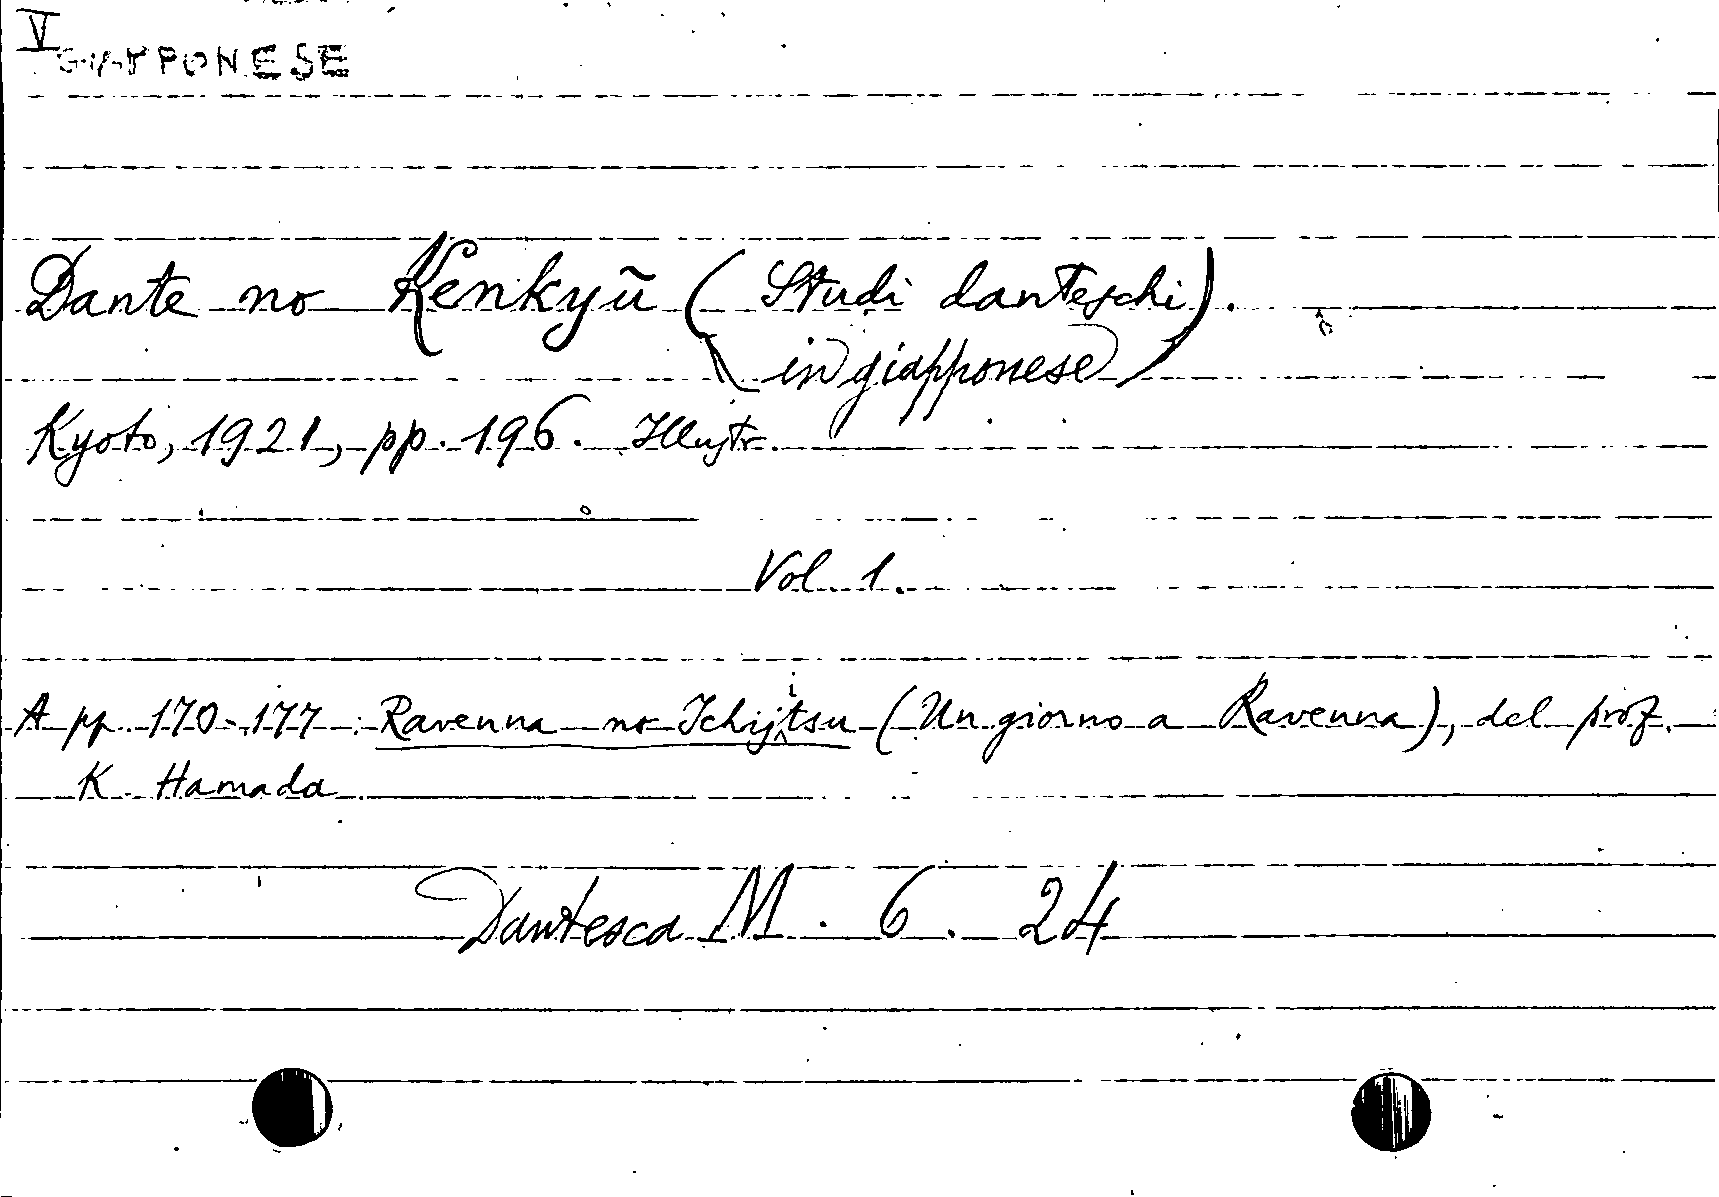 V
GIAPPONESE
Dante no Kenkyū (Studi danteschi).
(in giapponese)
Kyoto, 1921, pp. 196. Illustr.
Vol. 1.
A pp. 170-177: Ravenna no Ichijitsu (Un giorno a Ravenna), del prof.
K. Hamada
Dantesca M. 6. 24